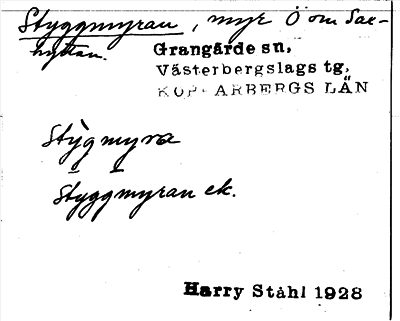 Styggmyran, myr Ö om Sax-
hyttan.
Grangärde sn,
Västerbergslags tg,
KOPPARBERGS LÄN
Stỳgmyra
Styggmyran ek.
Harry Ståhl 1928